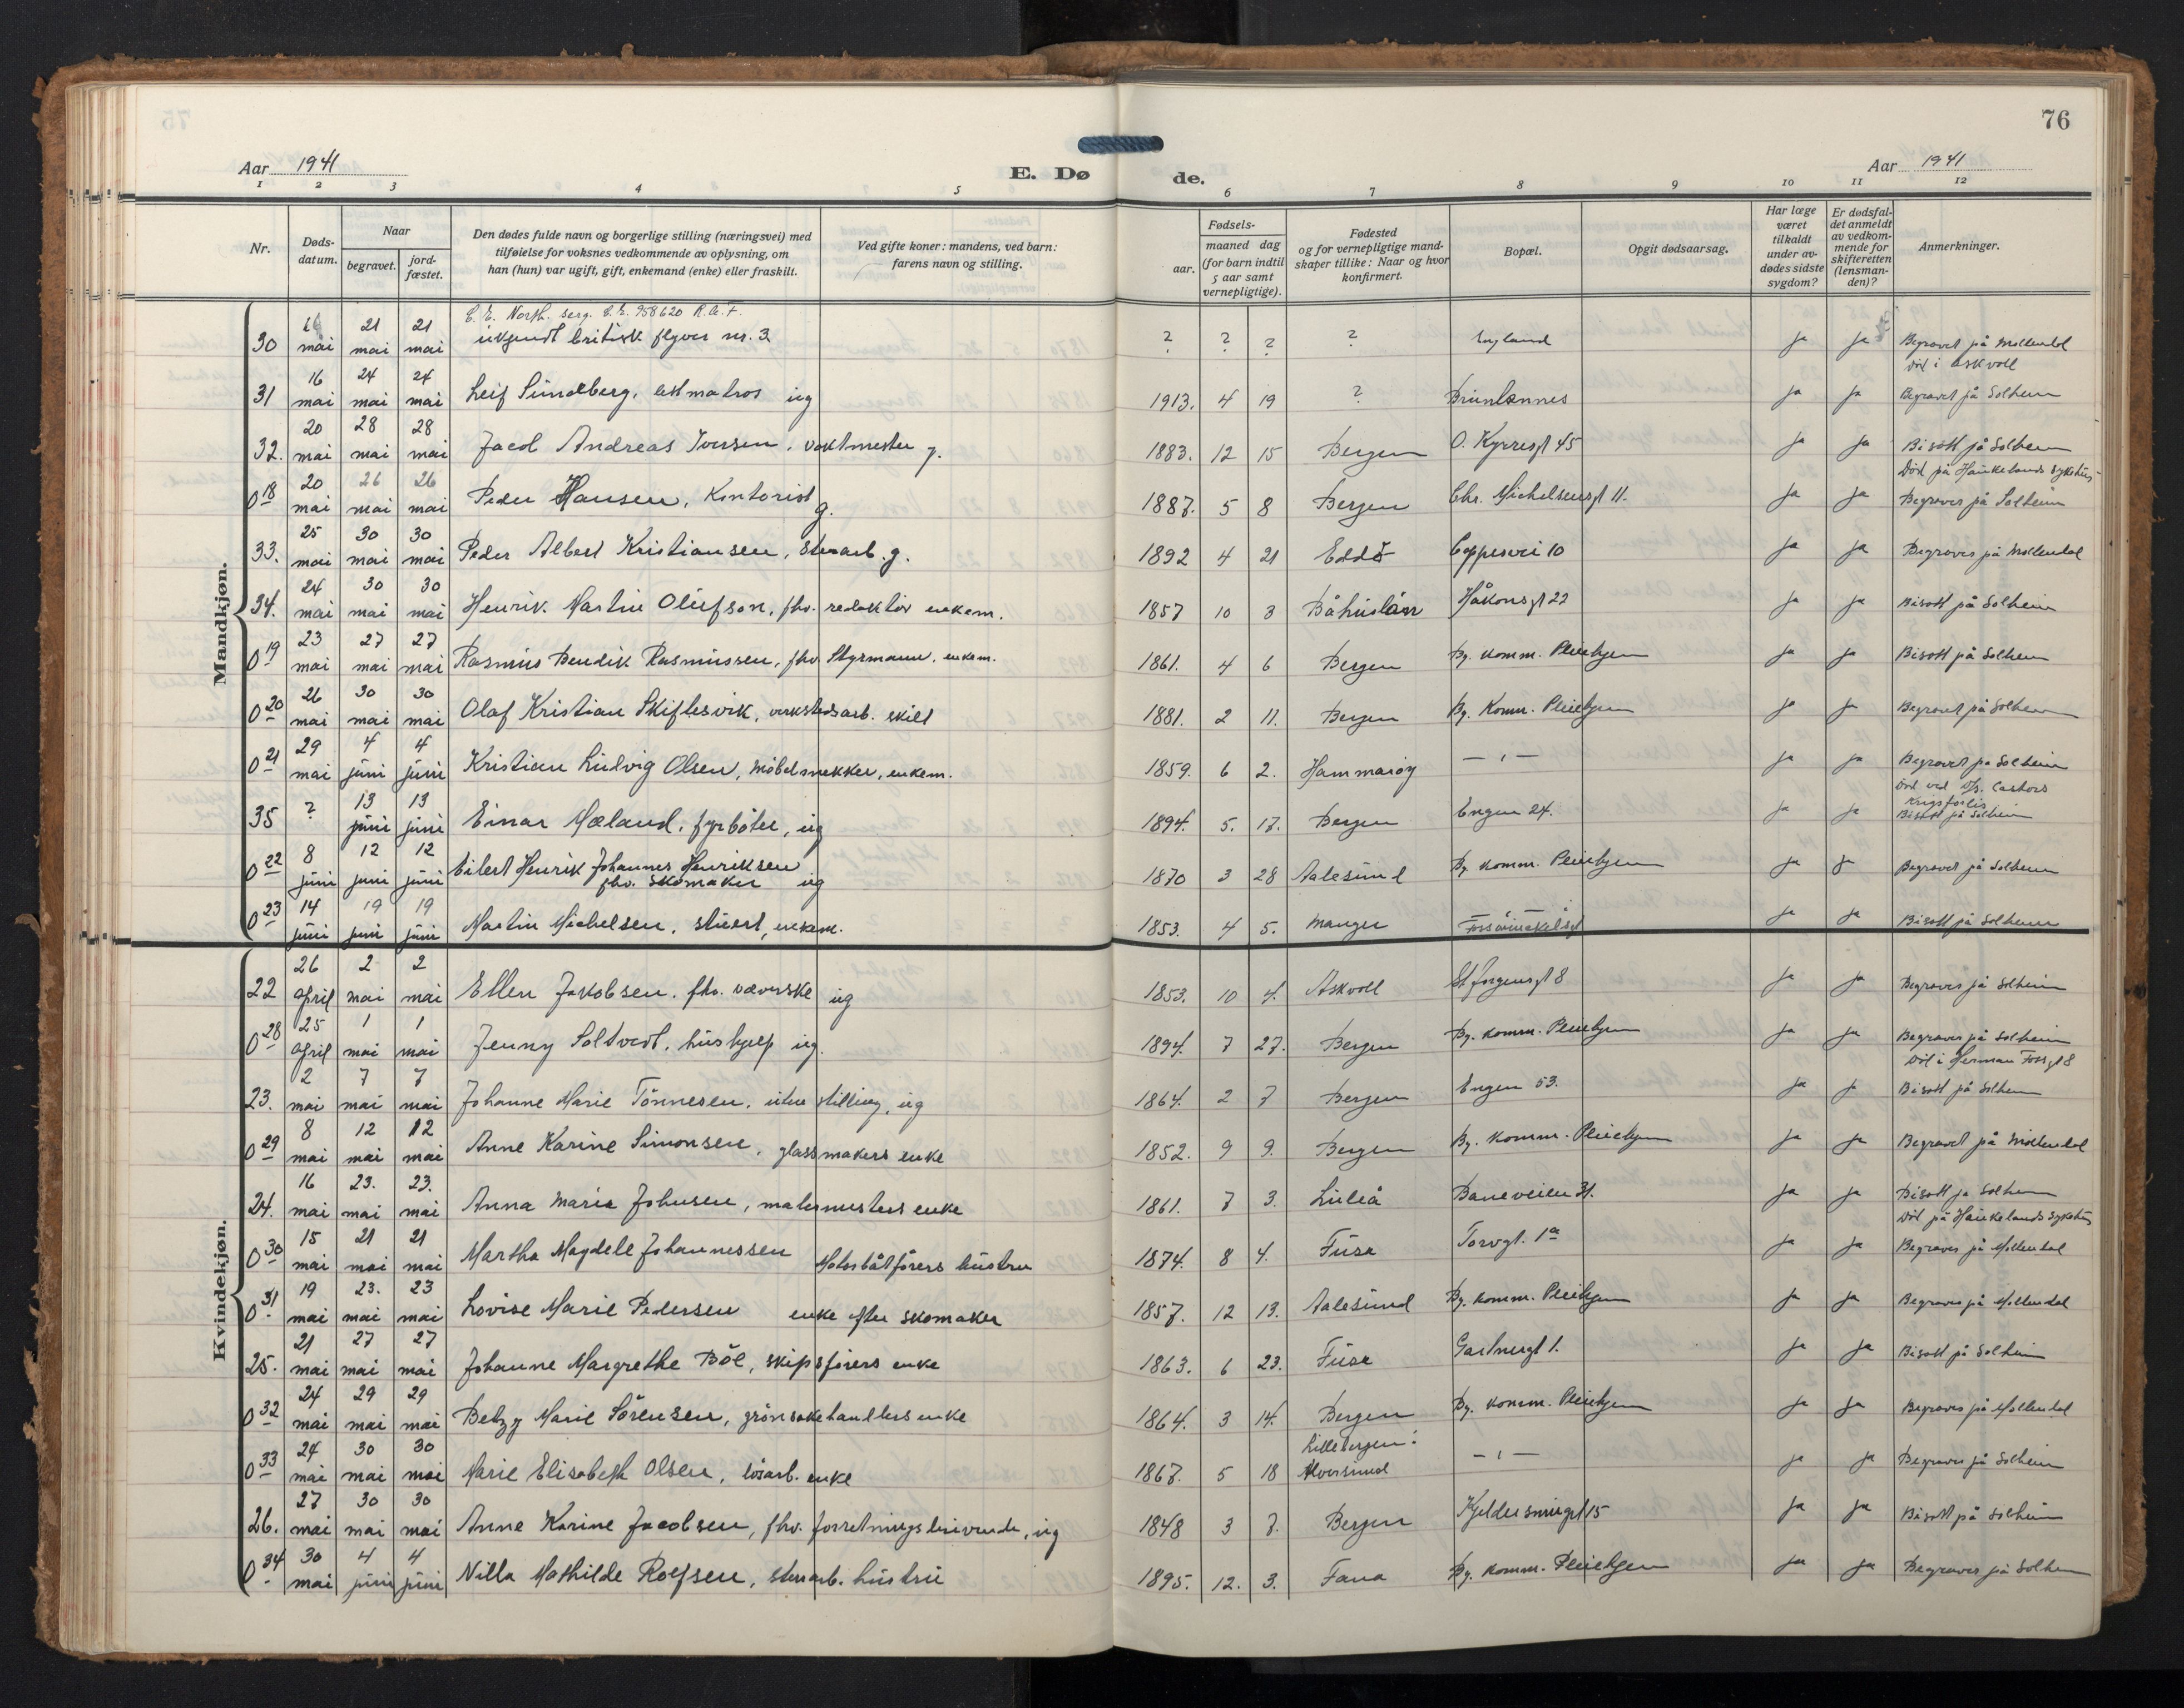 76
Aar 1941
E. Dø de.
Aar 1941
1 2 3 4 5 6 7 8 9 10 11 12
Nr.
Døds-datum.
Naar
begravet.
jord-fæstet.
Den dødes fulde navn og borgerlige stilling (næringsvei) med
tilføielse for voksnes vedkommende av oplysning, om
han (hun) var ugift, gift, enkemand (enke) eller fraskilt.
Ved gifte koner: mandens, ved barn:
farens navn og stilling.
Fødsels-
aar.
maaned dag
(for barn indtil
5 aar samt
vernepligtige).
Fødested
og for vernepligtige mand-
skaper tillike: Naar og hvor
konfirmert.
Bopæl.
Opgit dødsaarsag.
Har læge
været
tilkaldt
under av-
dødes sidste
sygdom?
Er dødsfal-
det anmeldt
av vedkom-
mende for
skifteretten
(lensman-
den)?
Anmerkninger.
Mandkjøn.
North. serg. 958620 R.A.F.
30 mai 21 mai 21 mai ukjendt britisk flyver nr. 3 ? ? ? ? England ja ja Begravet på Møllendal
Død i Askvoll
31 16 mai 24 mai 24 mai Leif Sundberg, matros ug 1913. 4 19 ? Brunlannes ja ja Begravet på Solheim
32. 20 mai 28 mai 28 mai Jacob Andreas Iversen, vaktmester g. 1883. 12 15 Bergen O. Kyrresgt 45 ja ja Bisatt på Solheim
Död på Haukelands sykehus
0 18 20 mai 26 mai 26 mai Peder Hansen, Kontorist g. 1887. 5 8 Bergen Chr. Michelsensgt 11. ja ja Begraves på Solheim
33. 25 mai 30 mai 30 mai Peder Albert Kristiansen, g. 1892 4 21 Eddö 10 ja ja Begraves på Møllendal
34. 24 mai 30 mai 30 mai Henrik Martin Olufson, fhv. redaktör enkem. 1857 10 3 Båhuslän Håkonsgt 22 ja ja Bisatt på Solheim
0 19 23 mai 27 mai 27 mai Rasmus Bendik Rasmussen, fhv Styrmann, enkem. 1861. 4 6 Bergen By. komm. Pleiehjem ja ja Bisatt på Solheim
0 20 26 mai 30 mai 30 mai Olaf Kristian Skiftesvik, verkstedsarb. skilt 1881. 2 11. Bergen By. Komm. Pleiehjem ja ja Begravet på Solheim
0 21 29 mai 4 juni 4 juni Kristian Ludvig Olsen, möbelsnekker, enkem. 1859. 6 2. Hammaröy — " — ja ja Begravet på Solheim
35 ? 13 juni 13 juni Einar Mæland, fyrböter, ug 1894. 5. 17. Bergen Engen 24. ja ja Död ved D/s. Castors
Krigsforlis
Bisatt på Solheim
0 22 8 juni 12 juni 12 juni Eilert Henrik Johannes Henriksen
fhv. skomaker ug 1870 3 28 Aalesund By komm. Pleiehjem ja ja Begravet på Solheim
0 23 14 juni 19 juni 19 juni Martin Michelsen, stuert, enkem. 1853. 4 5. Manger ja ja Bisatt på Solheim
Kvindekjøn.
22 26 April 2 mai 2 mai Ellen Jakobsen. fhv. væverske ug 1853. 10 4. Askvoll St. Jörgensgt 8 ja ja Begraves på Solheim
0 28 25 April 1 mai 1 mai Jenny Soltvedt, hushjelp ug. 1894. 7 27. Bergen By. komm. Pleiehjem ja ja Begraves på Solheim
Död i Herman Fossgt 8
23. 2 mai 7 mai 7 mai Johanne Marie Tönnesen, uten stilling, ug 1864. 2 7 Bergen Engen 53. ja ja Bisatt på Solheim
0 29 8 mai 12 mai 12 mai Anne Karine Simonsen, glassmakers enke 1852. 9 9. Bergen By. komm. Pleiehjem ja ja Begravet på Møllendal
24. 16 mai 23. mai 23. mai Anna Maria Johnsen, malermesters enke 1861. 7 3. Luleå Baneveien 31. ja ja Bisatt på Solheim
Död på Haukelands sykehus
0 30 15 mai 21 mai 21 mai Martha Magdele Johannessen Motorbåtförers hustru 1874. 8 4. Fusa Torvgt. 1a ja ja Begraves på Møllendal
0 31 19 mai 23. mai 23 mai Lovise Marie Pedersen enke efter skomaker 1857. 12 13. Aalesund By. komm. Pleiehjem ja ja Begraves på Møllendal
25. 21 mai 27 mai 27 mai Johanne Margrethe Böe, skipsförers enke 1863. 6 23. Fusa Gartnergt 1. ja ja Bisatt på Solheim
0 32 24 mai 29 mai 29 mai Betzy Marie Sörensen, grönsakehandlers enke 1864. 3 14. Bergen By. komm. Pleiehjem ja ja Begraves på Møllendal
0 33 24 mai 30 mai 30 mai Marie Elisabeth Olsen, enke 1867. 5 18 Lillebergen:
Alversund — " — ja ja Begraves på Solheim
26. 27 mai 30 mai 30 mai Anne Karine Jacobsen, fhv. forretningsdrivende, ug 1848 3 7. Bergen Kjeldersmugt 15 ja ja Bisatt på Solheim
0 34 30 mai 4 juni 4 juni Nilla Mathilde Rolfsen, hustru 1895. 12. 3. Fana By. komm. Pleiehjem ja ja Begraves på Solheim